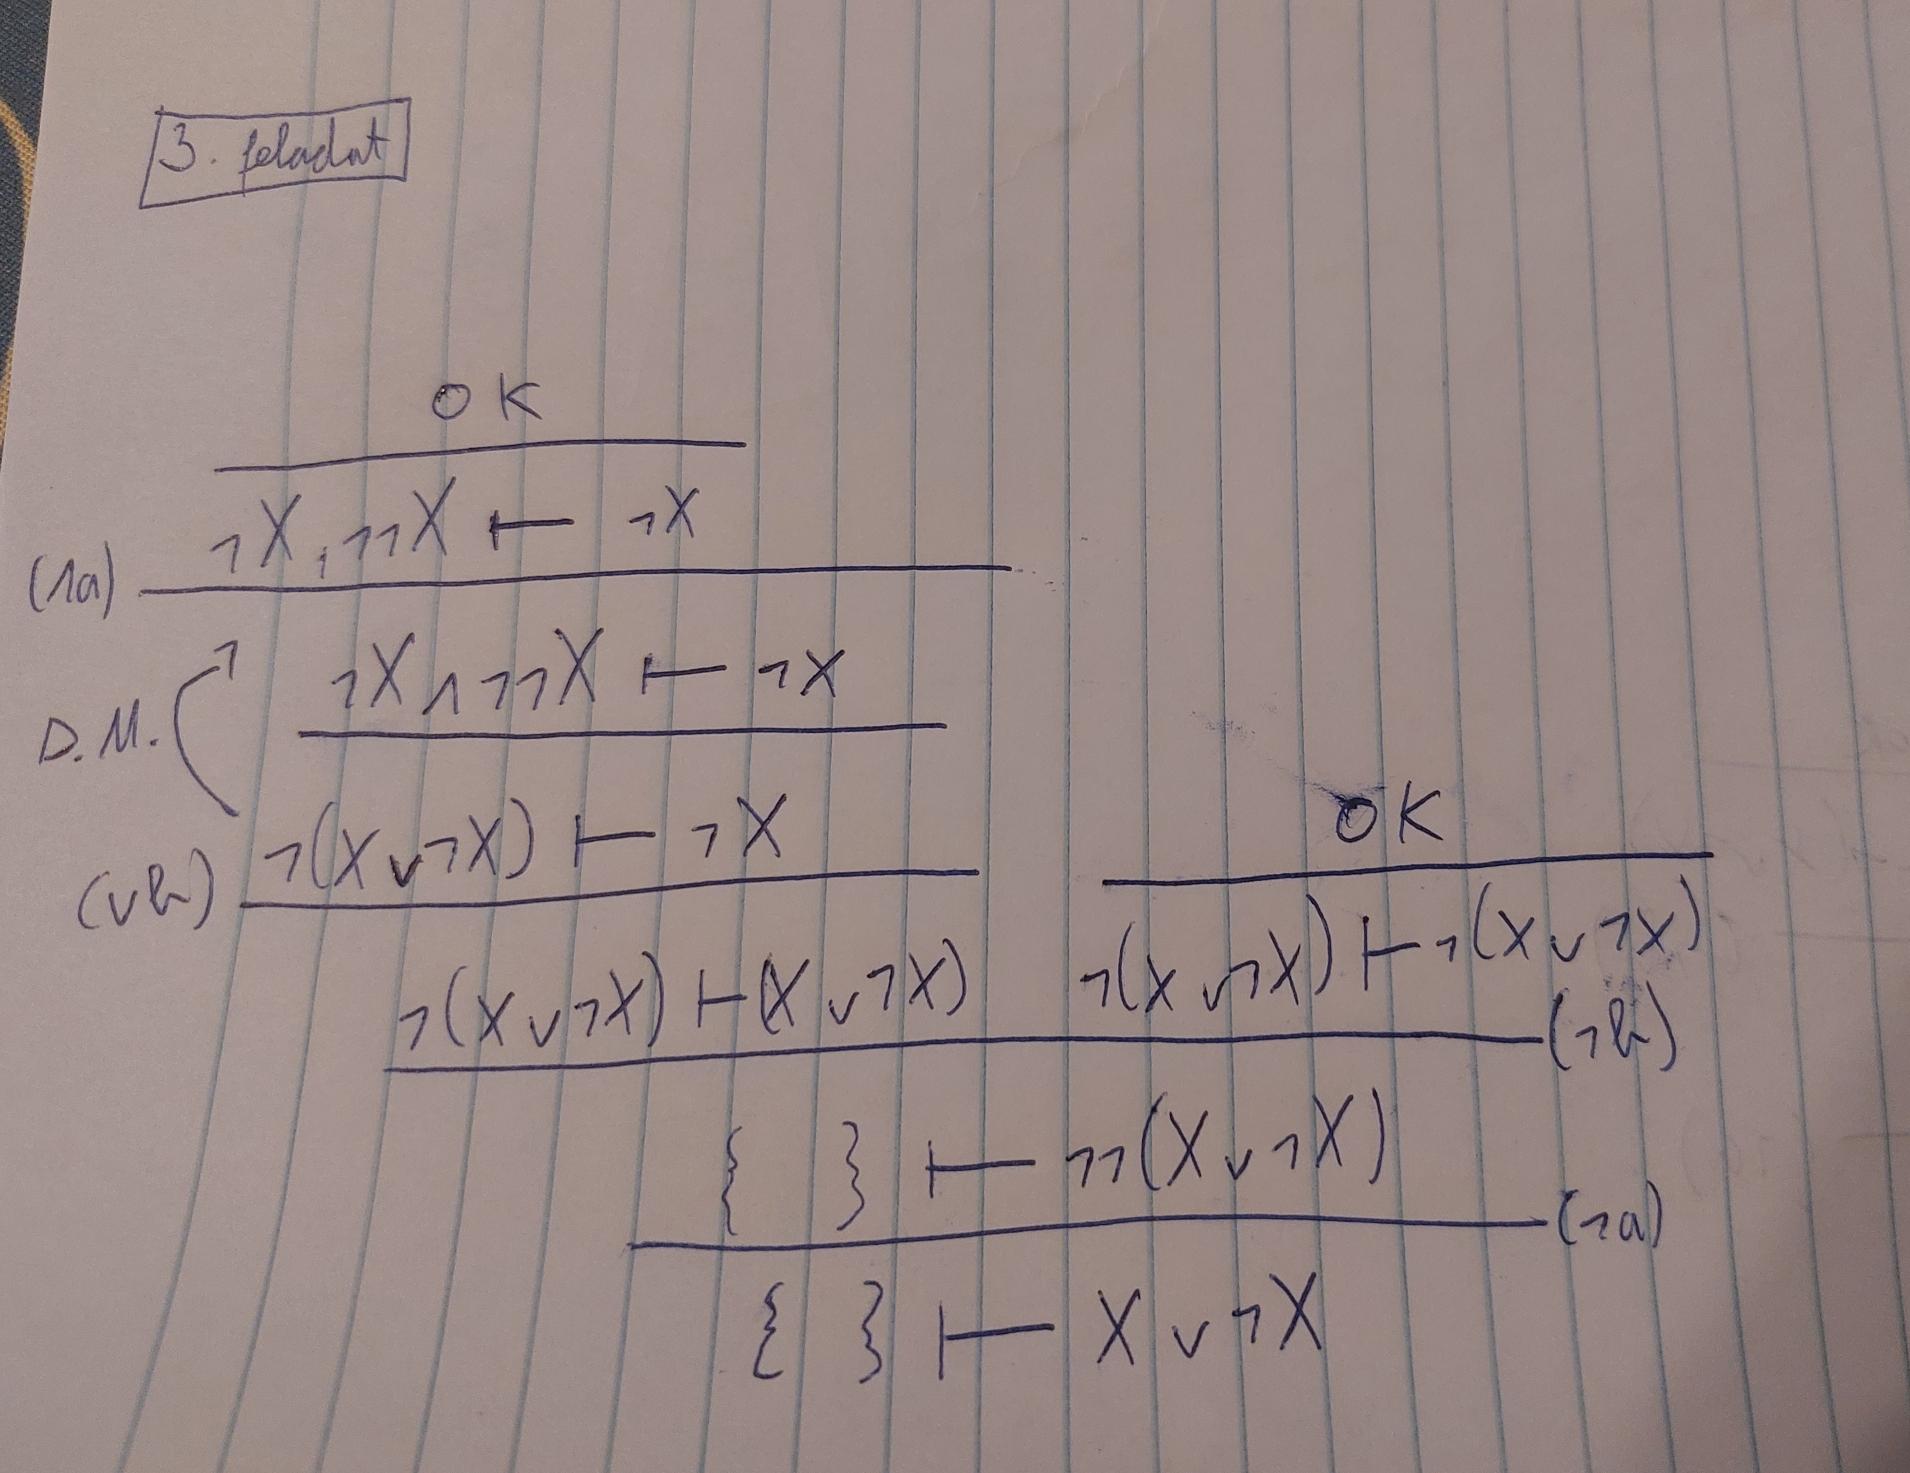 3. feladat
OK
¬X, ¬¬X ⊢ ¬X
(∧a)
¬X ∧ ¬¬X ⊢ ¬X
D.M.
¬(X ∨ ¬X) ⊢ ¬X
OK
(∨b)
¬(X ∨ ¬X) ⊢ (X ∨ ¬X) ¬(X ∨ ¬X) ⊢ ¬(X ∨ ¬X)
(¬b)
{ } ⊢ ¬¬(X ∨ ¬X)
(¬a)
{ } ⊢ X ∨ ¬X